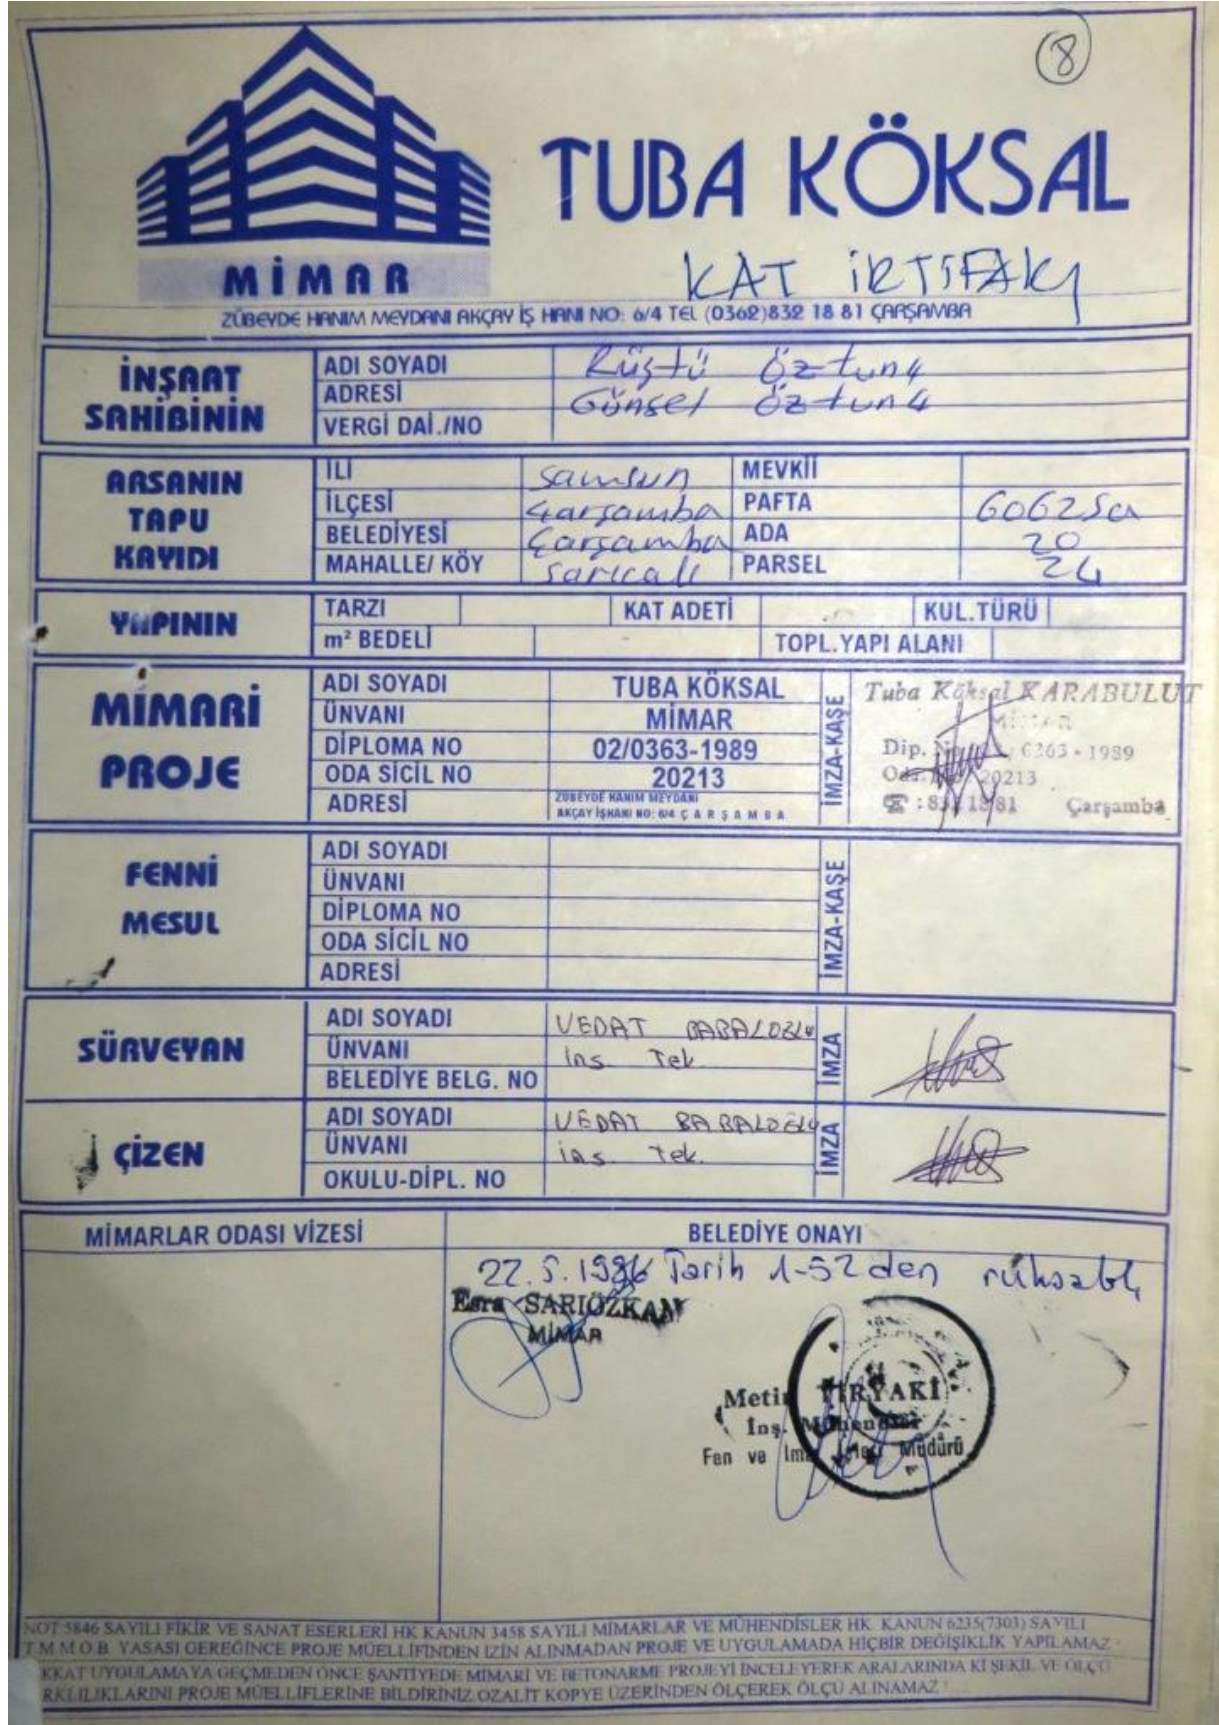 8
TUBA KÖKSAL
MİMAR
KAT İRTİFAKI
ZÜBEYDE HANIM MEYDANI AKÇAY İŞ HANI NO: 6/4 TEL (0362)832 18 81 ÇARŞAMBA
İNŞAAT SAHİBİNİN
ADI SOYADI Rüştü Öztunç
ADRESİ Günsel Öztunç
VERGİ DAİ./NO
ARSANIN TAPU KAYIDI
İLİ Samsun MEVKİİ
İLÇESİ Çarşamba PAFTA
BELEDİYESİ Çarşamba ADA 20
MAHALLE/ KÖY Sarıcalı PARSEL 24
YAPININ
TARZI KAT ADETİ KUL.TÜRÜ
m² BEDELİ TOPL.YAPI ALANI
MİMARİ PROJE
ADI SOYADI TUBA KÖKSAL
ÜNVANI MİMAR
DİPLOMA NO 02/0363-1989
ODA SİCİL NO 20213
ADRESİ ZÜBEYDE HANIM MEYDANI
AKÇAY İŞHANI NO: 6/4 ÇARŞAMBA
İMZA-KAŞE
Tuba Köksal KARABULUT
MİMAR
Dip. 0363-1989
20213
: 832 18 81 Çarşamba
FENNİ MESUL
ADI SOYADI
ÜNVANI
DİPLOMA NO
ODA SİCİL NO
ADRESİ
İMZA-KAŞE
SÜRVEYAN
ADI SOYADI VEDAT BABALOĞLU
ÜNVANI İnş. Tek.
BELEDİYE BELG. NO
İMZA
ÇİZEN
ADI SOYADI VEDAT BABALOĞLU
ÜNVANI İnş. Tek.
OKULU-DİPL. NO
İMZA
MİMARLAR ODASI VİZESİ
BELEDİYE ONAYI
22.5.1996 Tarih 1-52 den ruhsatlı
Esra SARIÖZKAN
MİMAR
Metin TİRYAKİ
İnş. Mühendisi
Fen ve İmar İşleri Müdürü
NOT 5846 SAYILI FİKİR VE SANAT ESERLERİ HK KANUN 3458 SAYILI MİMARLAR VE MÜHENDİSLER HK KANUN 6235(7303) SAYILI
T.M.M.O.B. YASASI GEREĞİNCE PROJE MÜELLİFİNDEN İZİN ALINMADAN PROJE VE UYGULAMADA HİÇBİR DEĞİŞİKLİK YAPILAMAZ
KKAT UYGULAMAYA GEÇMEDEN ÖNCE ŞANTİYEDE MİMARİ VE BETONARME PROJEYİ İNCELEYEREK ARALARINDA Kİ ŞEKİL VE ÖLÇÜ
RKLILIKLARINI PROJE MÜELLİFLERİNE BİLDİRİNİZ OZALİT KOPYE ÜZERİNDEN ÖLÇEREK ÖLÇÜ ALINAMAZ !